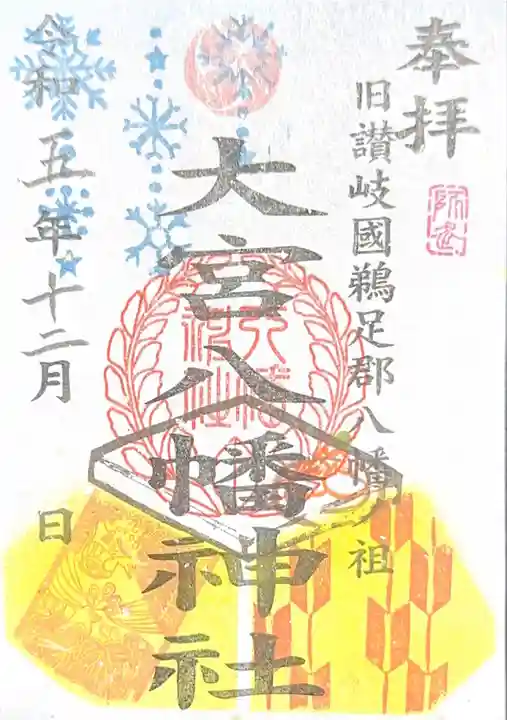 奉拝
旧讃岐國鵜足郡八幡ノ祖
大宮八幡神社
令和五年十二月 日